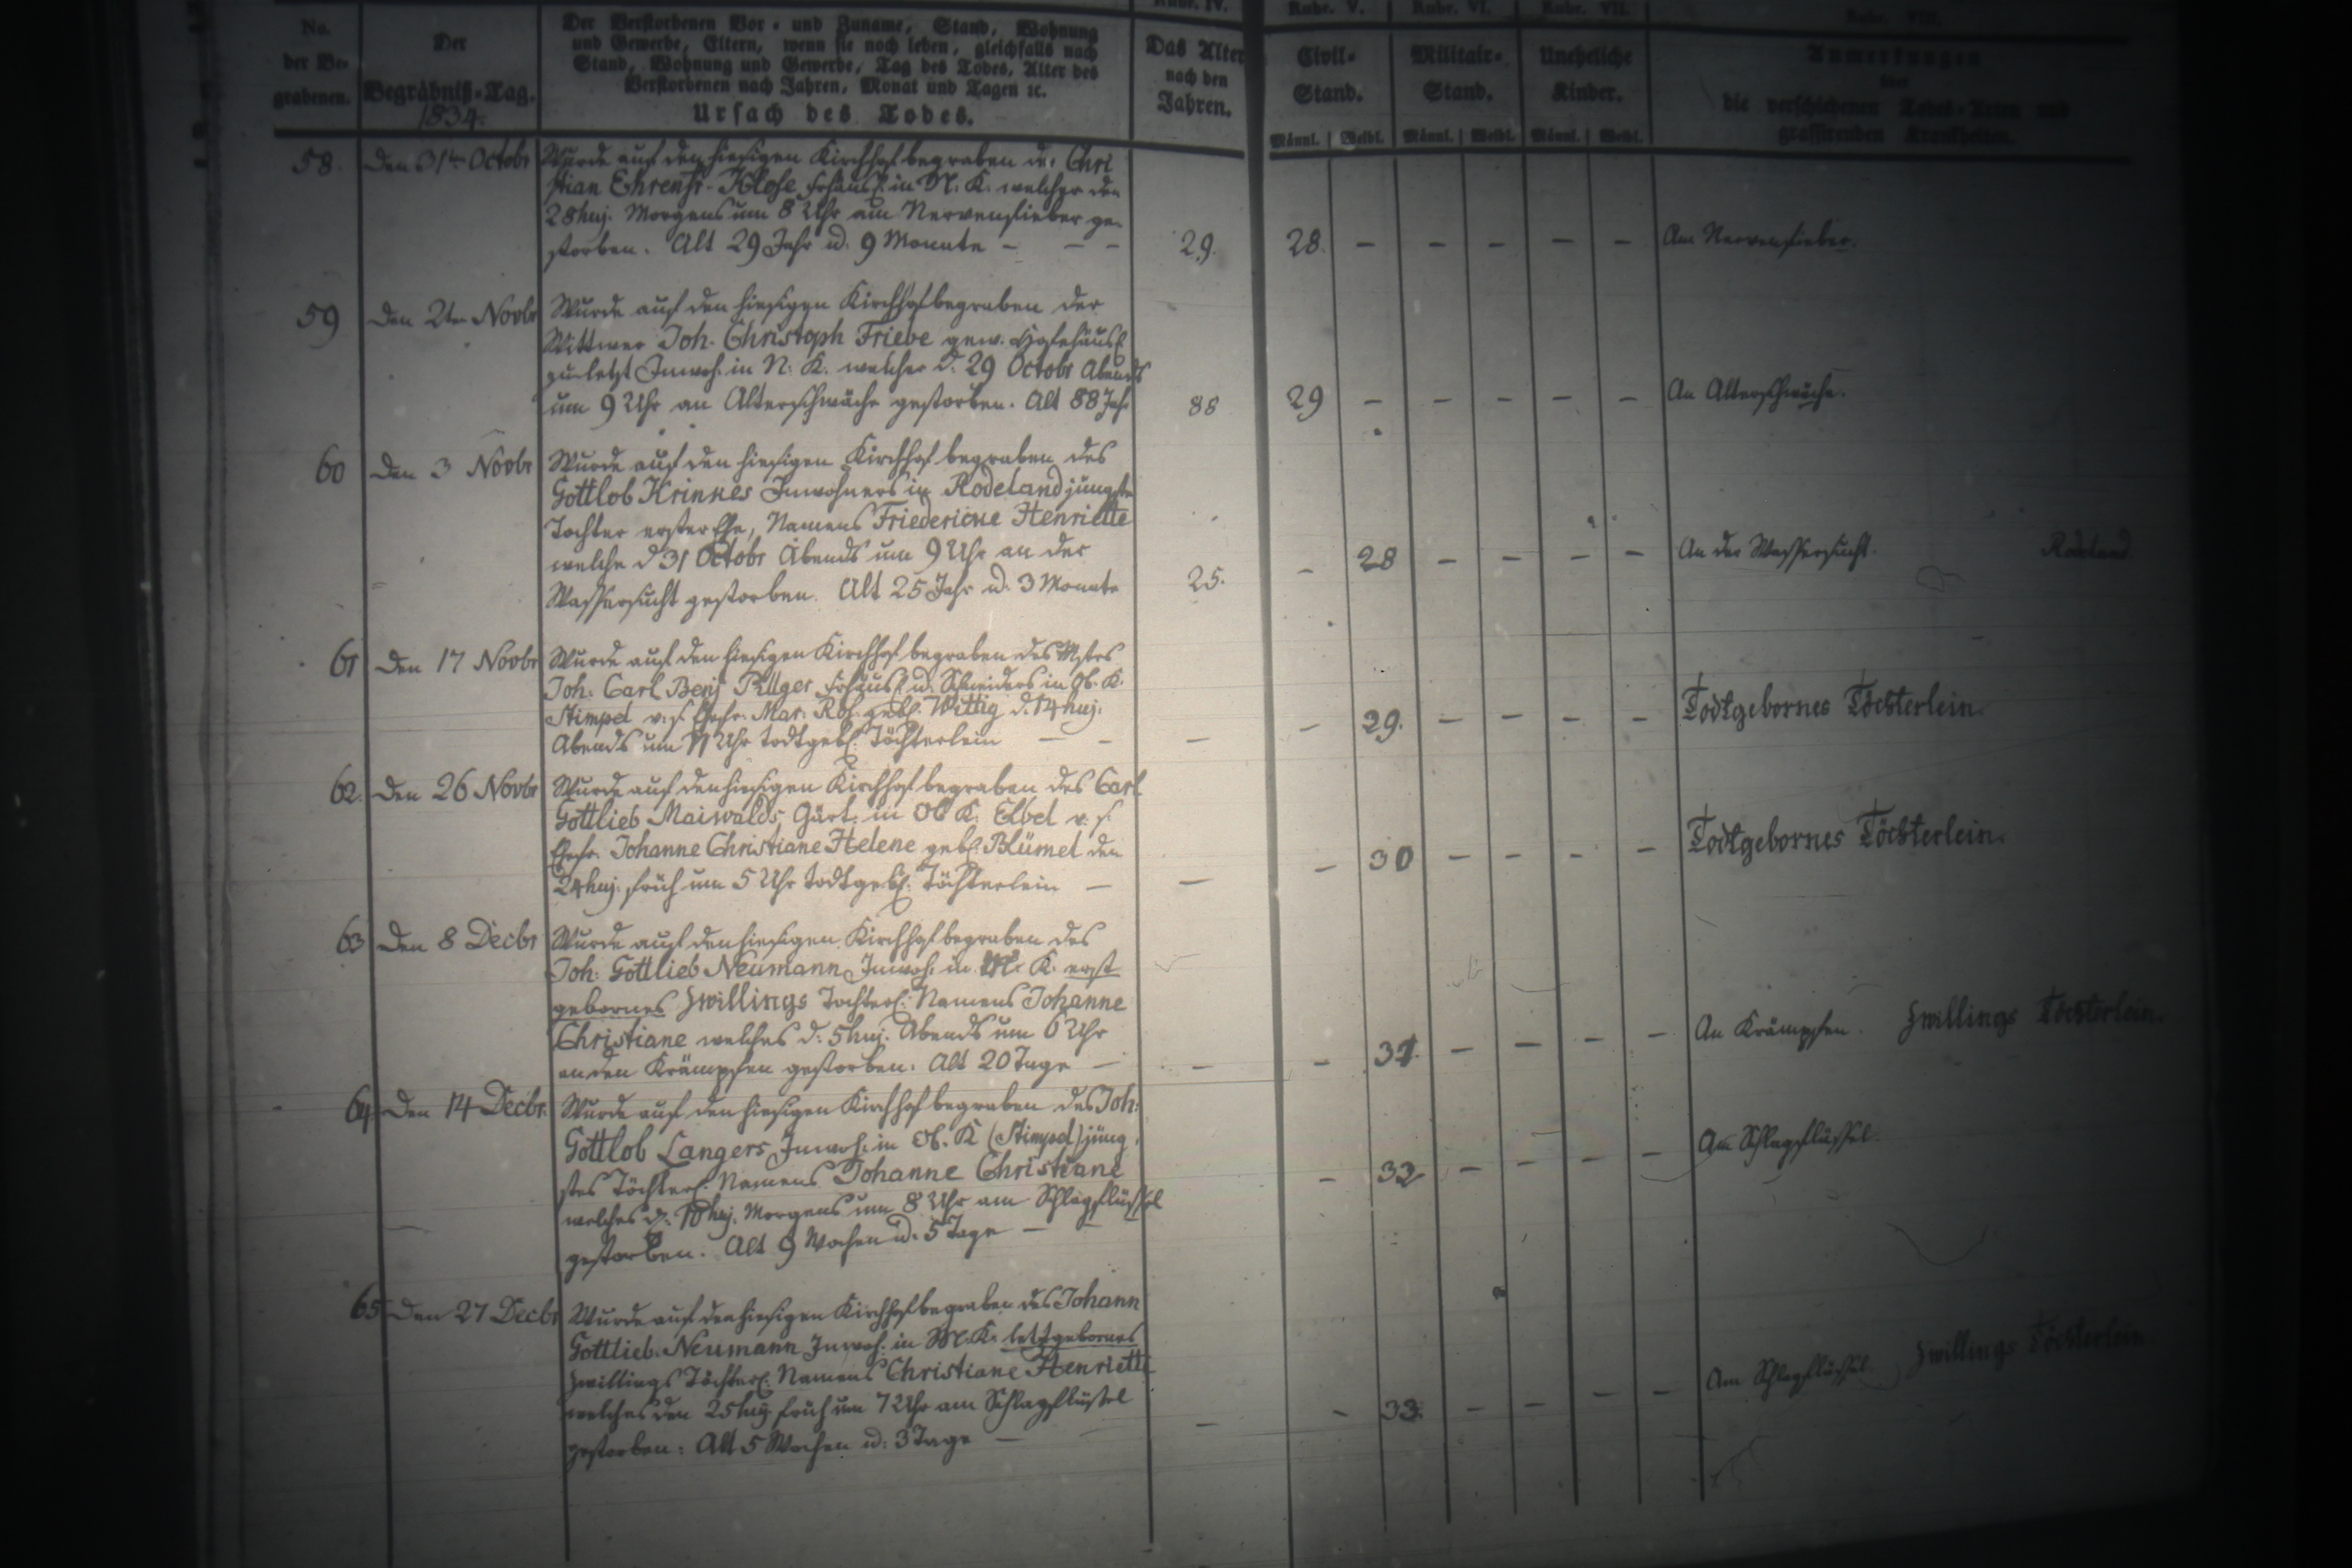 Rubr. IV. Rubr. V. Rubr. VI. Rubr. VII. Rubr. VIII.
No. der Begrabenen.
Der Begräbniß-Tag. 1834.
Der Verstorbenen Vor- und Zuname, Stand, Wohnung
und Gewerbe, Eltern, wenn sie noch leben, gleichfalls nach
Stand, Wohnung und Gewerbe, Tag des Todes, Alter des
Verstorbenen nach Jahren, Monat und Tagen ꝛc.
Ursach des Todes.
Das Alter nach den Jahren.
Civil-Stand. Männl. Weibl.
Militair-Stand. Männl. Weibl.
Uneheliche Kinder. Männl. Weibl.
Anmerkungen
über
die verschiedenen Todes-Arten und
grassirenden Krankheiten.
58. den 31ten Octobr Wurde auf den hiesigen Kirchhof begraben der Chri
stian Ehrenfr. Klose Frhäusl. in N. K. welcher den
28 huj. Morgens um 8 Uhr am Nervenfieber ge-
storben. Alt 29 Jahr u. 9 Monate – – – 29. 28. – – – – – Am Nervenfieber.
59 den 2ten Novbr Wurde auf den hiesigen Kirchhof begraben der
Wittwer Joh. Christoph Friebe gew.
zuletzt Inwoh. in N. K. welcher d. 29 Octobr Abends
um 9 Uhr an Altersschwäche gestorben. Alt 88 Jahr 88 29 – – – – – An Altersschwäche.
60 den 3 Novbr Wurde auf den hiesigen Kirchhof begraben des
Gottlob Krinkes Inwohners in Rodeland jüngste
Tochter erster Ehe, Namens Friedericke Henriette
welche d 31 Octobr Abends um 9 Uhr an der
Wassersucht gestorben. Alt 25 Jahr u. 3 Monate 25. – 28 – – – – An der Wassersucht. Rodeland
61 den 17 Novbr Wurde auf den hiesigen Kirchhof begraben des Mstrs
Joh. Carl Benj Frhäusl. u. Schneiders in Ob. K.
Stimpel v. s. Ehefr. Mar. Ros. geb. Wittig d. 14 huj.
Abends um 11 Uhr todtgeb. Töchterlein – – – – 29. – – – – Todtgebornes Töchterlein.
62. den 26 Novbr Wurde auf den hiesigen Kirchhof begraben des Carl
Gottlieb Maiwalds Gärt. in Ob K. Elbel v. s.
Ehefr. Johanne Christiane Helene geb. Blümel den
24 huj. früh um 5 Uhr todtgeb. Töchterlein – – – 30 – – – – Todtgebornes Töchterlein.
63 den 8 Decbr Wurde auf den hiesigen Kirchhof begraben des
Joh. Gottlieb Neumann Inwoh. in M. K. erst
gebornes Zwillings Töchterl. Namens Johanne
Christiane welches d. 5 huj. Abends um 6 Uhr
an den Krämpfen gestorben. Alt 20 Tage – – – 31. – – – – An Krämpfen. Zwillings Töchterlein.
64. den 14 Decbr. Wurde auf den hiesigen Kirchhof begraben des Joh.
Gottlob Langers Inwoh. in Ob. K (Stimpel) jüng-
stes Töchterl. Namens Johanne Christiane
welches d. 10 huj. Morgens um 8 Uhr am Schlagflüssel
gestorben. Alt 9 Wochen u. 5 Tage – – – 32 – – – – Am Schlagflüssel.
65 den 27 Decbr Wurde auf den hiesigen Kirchhof begraben des Johann
Gottlieb Neumann Inwoh. in M. K. letztgebornes
Zwillings Töchterl. Namens Christiane Henriette
welches den 25 huj. früh um 7 Uhr am Schlagflüssel
gestorben: Alt 5 Wochen u: 3 Tage – – – 33. – – – – Am Schlagflüssel Zwillings Töchterlein